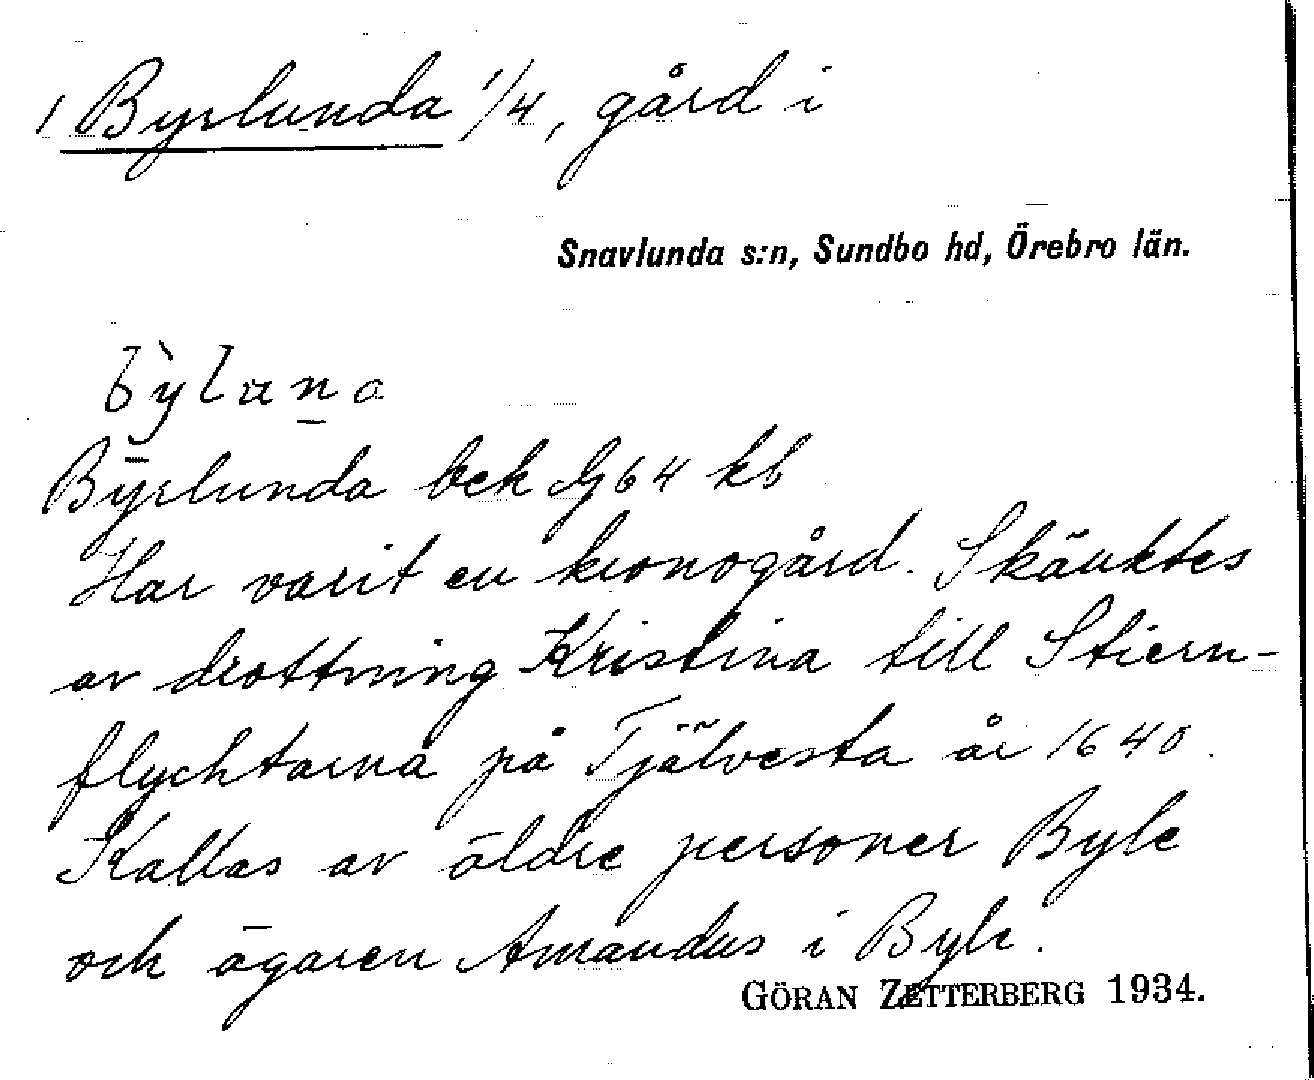 1 Byrlunda 1/4, gård i
Snavlunda s:n, Sundbo hd, Örebro län.
Byrlunda bek G 64 kb
Har varit en kronogård. Skänktes
av drottning Kristina till Stiern-
flychtarna på Tjälvesta år 1640.
Kallas av äldre personer Byle
och ägaren Amandus i Byle.
GÖRAN ZETTERBERG 1934.